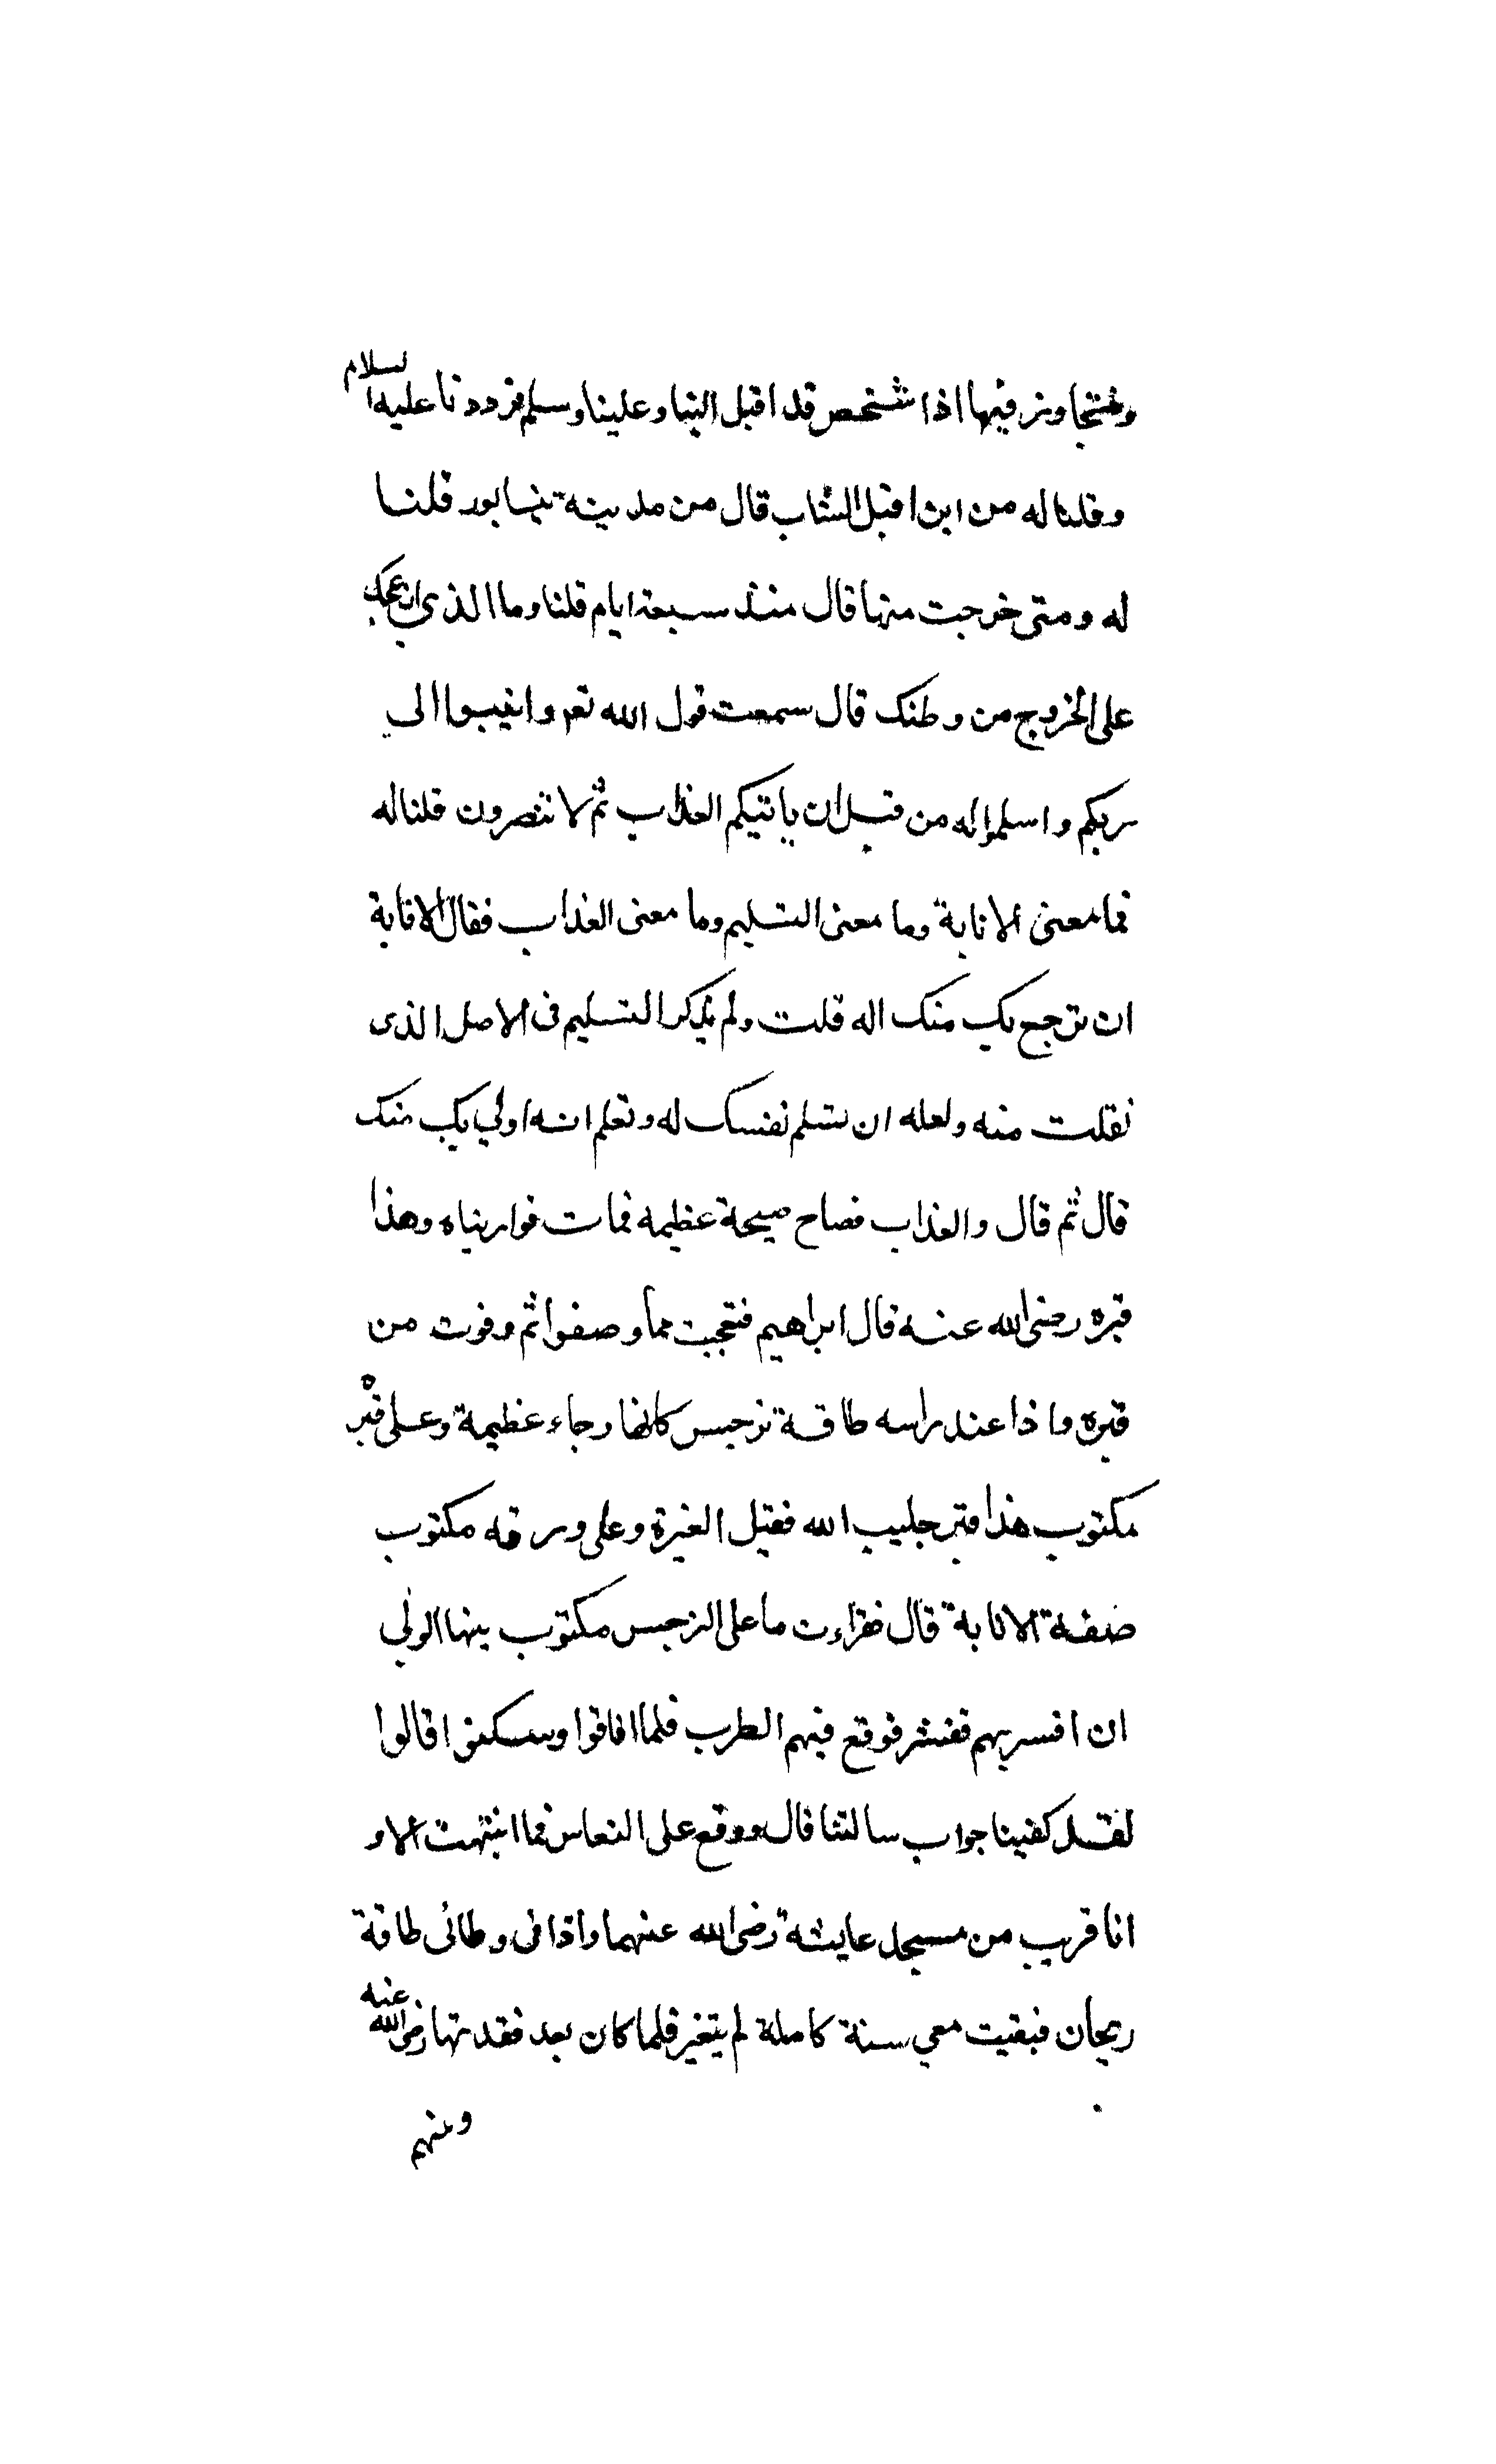 ونتجاوز فيها اذا شخص قد اقبل الينا وعلينا وسلم فرددنا عليه السلام
وقلنا له من اين اقبل الشاب قال من مدينة نيسابور قلنا
له ومتى خرجت منها قال منذ سبعة ايام قلنا وما الذي ازعجك
على الخروج من وطنك قال سمعت قول الله تعم وانيبوا الي
ربكم واسلموا له من قبل ان ياتيكم العذاب ثم لا تنصرون قلنا له
فما معنى الانابة وما معنى التسليم وما معنى العذاب فقال الانابة
ان ترجع بك منك اله قلت ولم يذكر التسليم فى الاصل الذى
نقلت منه ولعله ان تسلم نفسك له وتعلم انه اولي بك منك
قال ثم قال والعذاب فصاح صيحة عظيمه فمات فواريناه وهذا
قبره رضى الله عنه قال ابراهيم فتعجبت مما وصفوا ثم وفوت من
قبره واذا عند راسه طاقة نرجس كانها رجاء عظيمة وعلى قبره
مكتوب هذا قبر حبيب الله فقيل الغيرة وعلى ورقه مكتوب
صفة الانابة قال فقراءت ما على النرجس مكتوب بينها الولي
ان افسر بهم ففسر فوقع فيهم الطرب فلما افاقوا وسكنوا قالوا
لقد كفينا جواب سالتنا قال ووقع على النعاس فما انتبهت الا و
انا قريب من مسجد عايشة رضى الله عنهما واذا فى وطائى طاقة
ريحان فبقيت معي سنة كاملة لم يتغير فلما كان بعد فقدتها رضى الله عنه
ومنهم